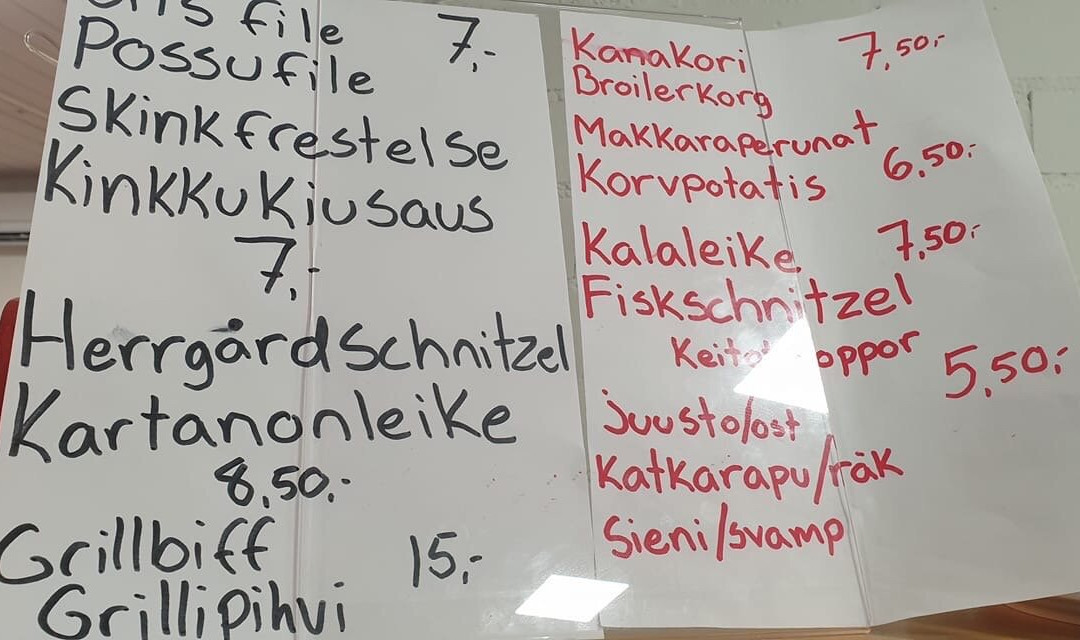 file 7,-
Possufile
Skinkfrestelse
Kinkkukiusaus
7,-
Herrgårdschnitzel
Kartanonleike
8,50,-
Grillbiff 15,-
Grillipihvi
Kanakori 7,50,-
Broilerkorg
Makkaraperunat
Korvpotatis 6,50,-
Kalaleike 7,50,-
Fiskschnitzel
5,50,-
juusto/ost
Katkarapu/räk
Sieni/svamp